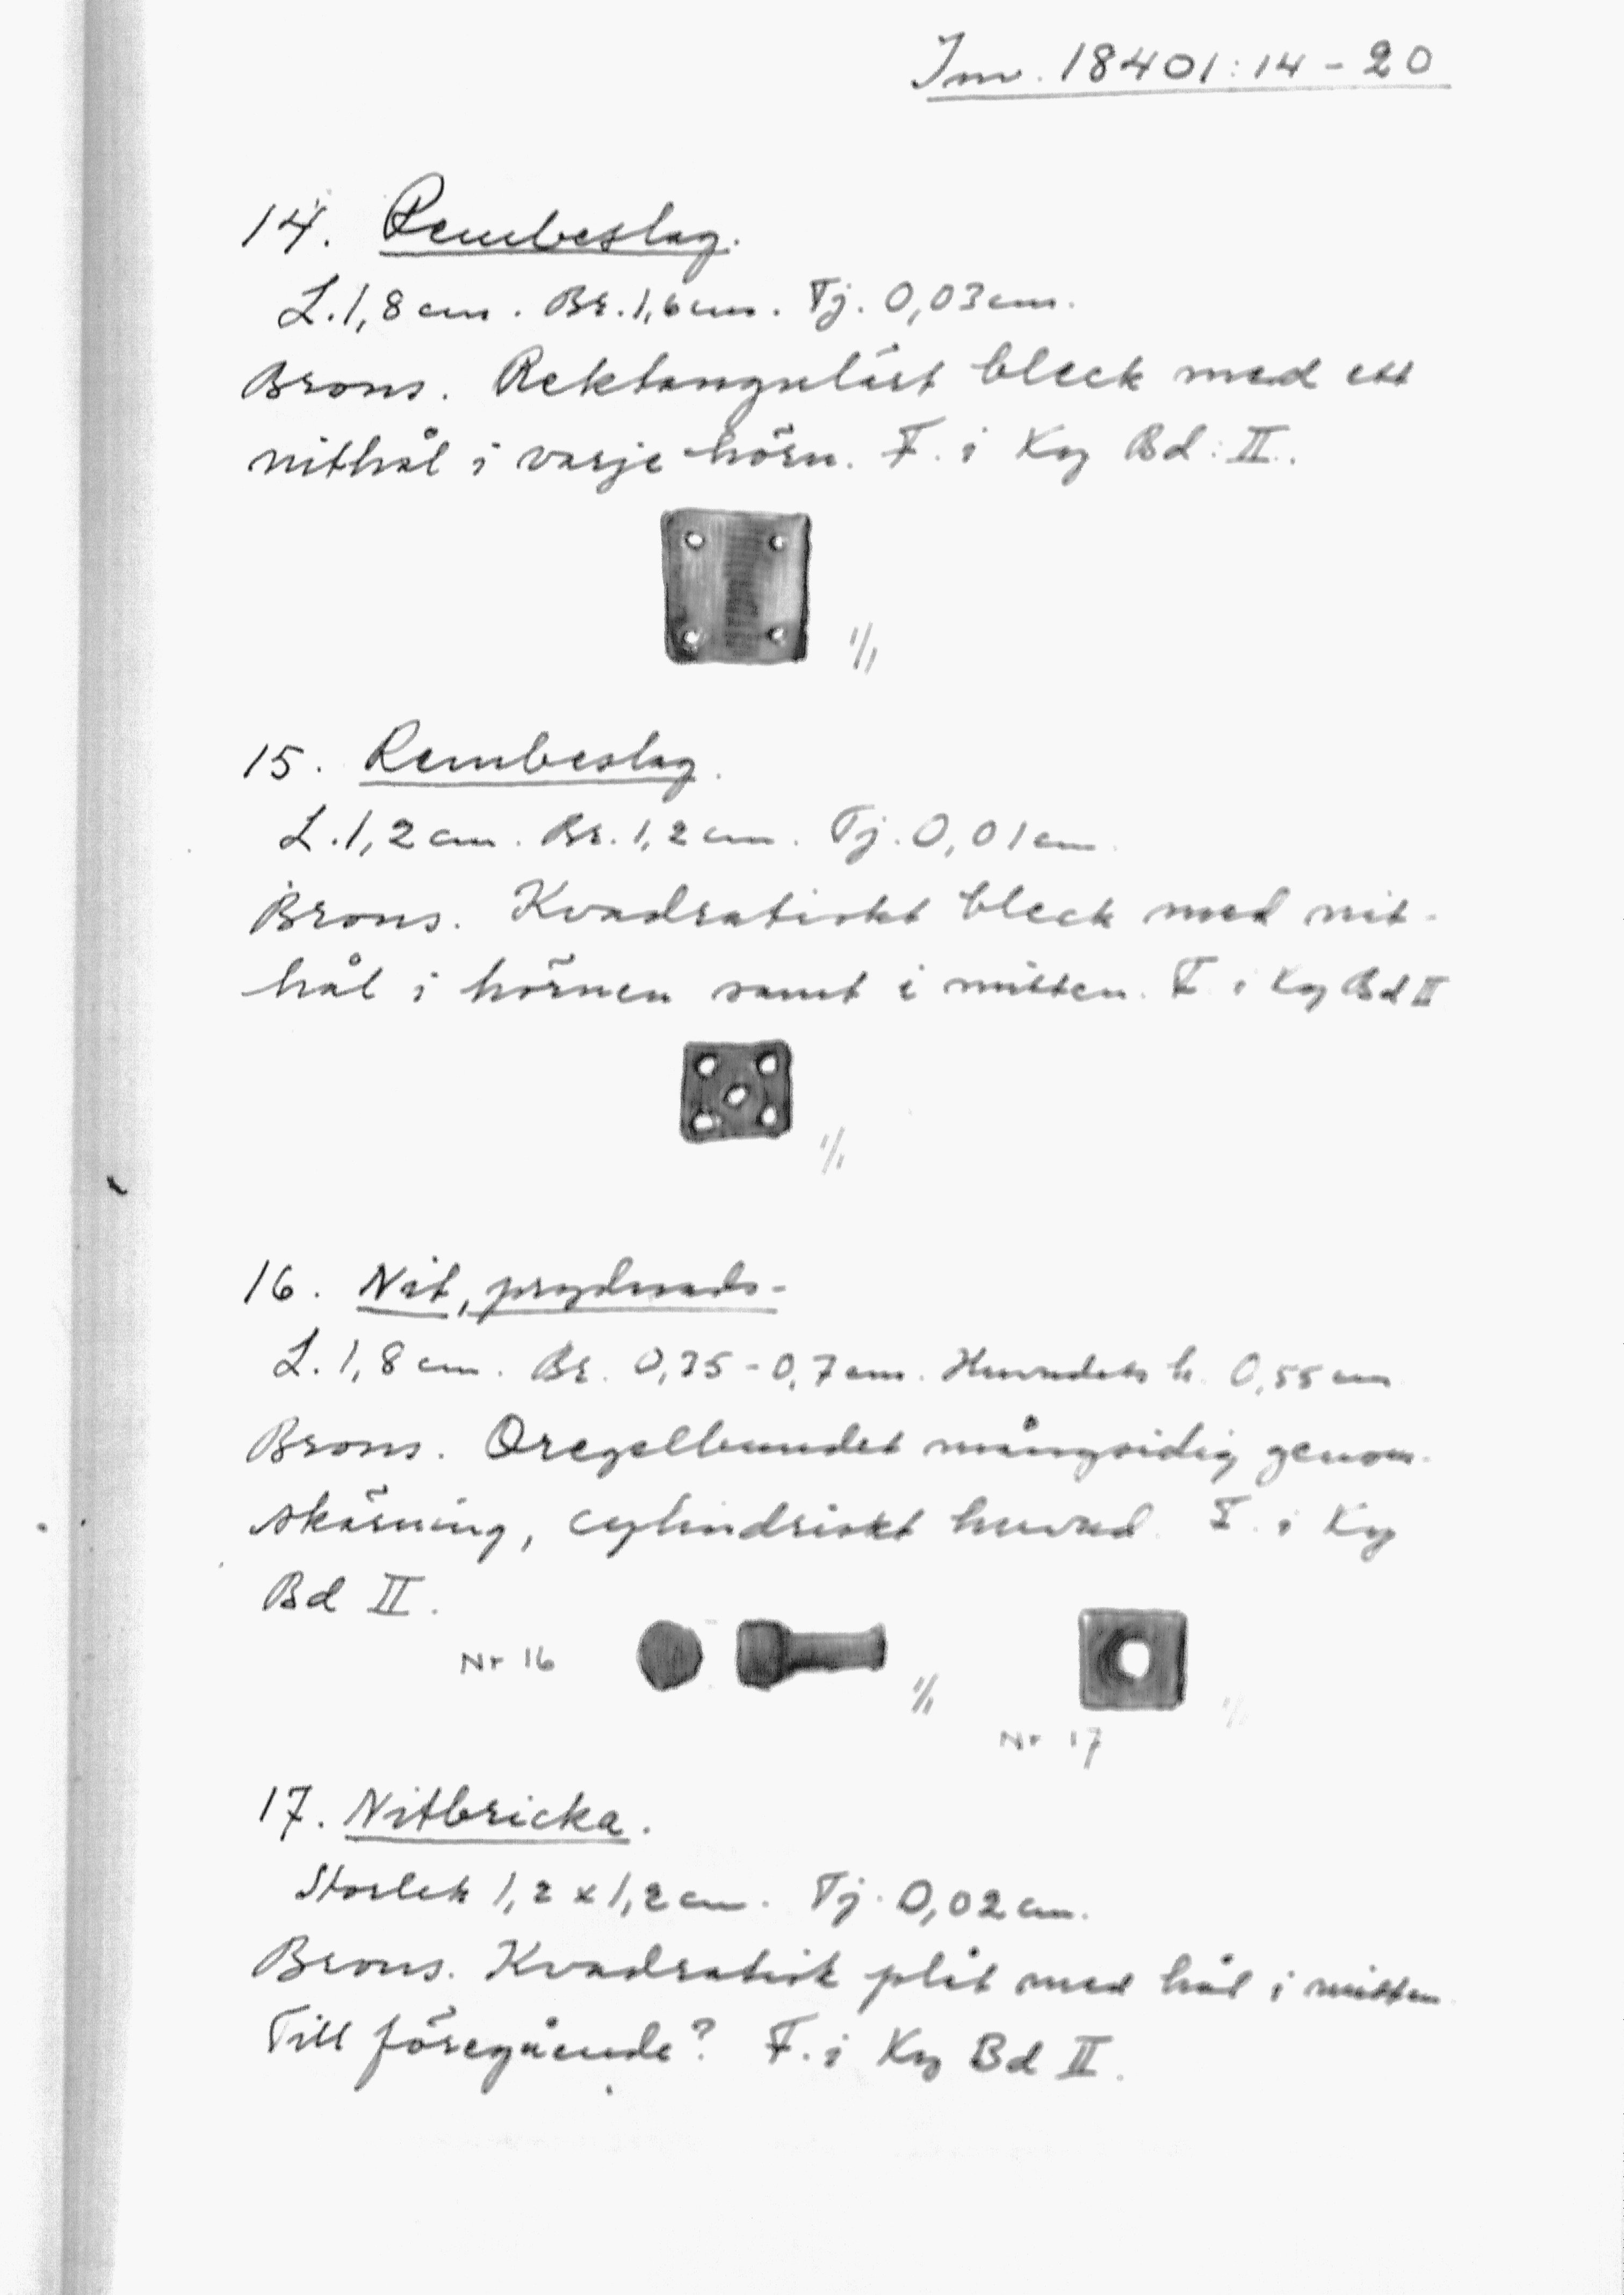 Inv. 18401:14-20
14. Rembeslag.
L. 1,8 cm. Br. 1,6 cm. Tj. 0,03 cm.
Brons. Rektangulärt bleck med ett
nithål i varje hörn. F. i Kvg Bd: II.
1/1
15. Rembeslag.
L. 1,2 cm. Br. 1,2 cm. Tj. 0,01 cm.
Brons. Kvadratiskt bleck med nit-
hål i hörnen samt i mitten. F. i Kvg Bd II
1/1
16. Nit, prydnads-
L. 1,8 cm. Br. 0,35-0,7 cm. Huvudets h. 0,55 cm
Brons. Oregelbundet mångsidig genom-
skärning, cylindriskt huvud. F. i Kvg
Bd II.
Nr 16 1/1 1/1
Nr 17
17. Nitbricka.
Storlek 1,2 x 1,2 cm. Tj. 0,02 cm.
Brons. Kvadratisk plåt med hål i mitten
Till föregående? F. i Kvg Bd II.